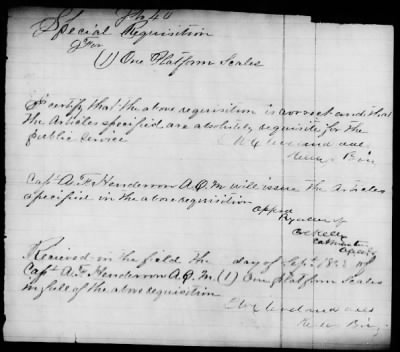 No 40
Special Requisition
For
(1) One Platform Scales
I certify that the above requisition is correct and that
the Articles specified are absolutely requisite for the
public service
Capt A. F. Henderson A.Q.M. will issue the Articles
specified in the above requisition
By order of
Received in the field the day of Sept 1863 of
Capt A. F. Henderson A.Q.M. (1) One Platform Scales
in full of the above requisition